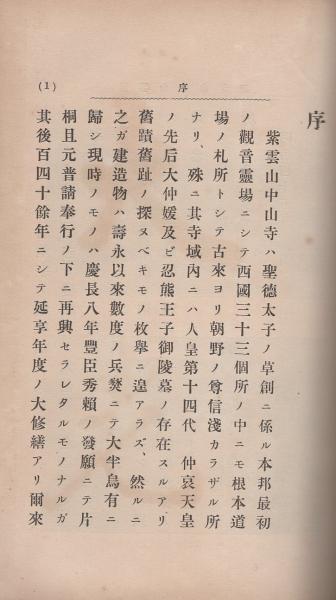 (1)
序
序
紫雲山中山寺ハ聖德太子ノ草創ニ係ル本邦最初
ノ觀音靈場ニシテ西國三十三個所ノ中ニモ根本道
場ノ札所トシテ古來ヨリ朝野ノ尊信淺カラザル所
ナリ、殊ニ其寺域內ニハ人皇第十四代 仲哀天皇
ノ先后大仲媛及ビ忍熊王子御陵墓ノ存在スルアリ
舊蹟舊趾ノ探ヌベキモノ枚擧ニ遑アラズ、然ルニ
之ガ建造物ハ壽永以來數度ノ兵燹ニテ大半烏有ニ
歸シ現時ノモノハ慶長八年豐臣秀賴ノ發願ニテ片
桐且元普請奉行ノ下ニ再興セラレタルモノナルガ
其後百四十餘年ニシテ延享年度ノ大修繕アリ爾來